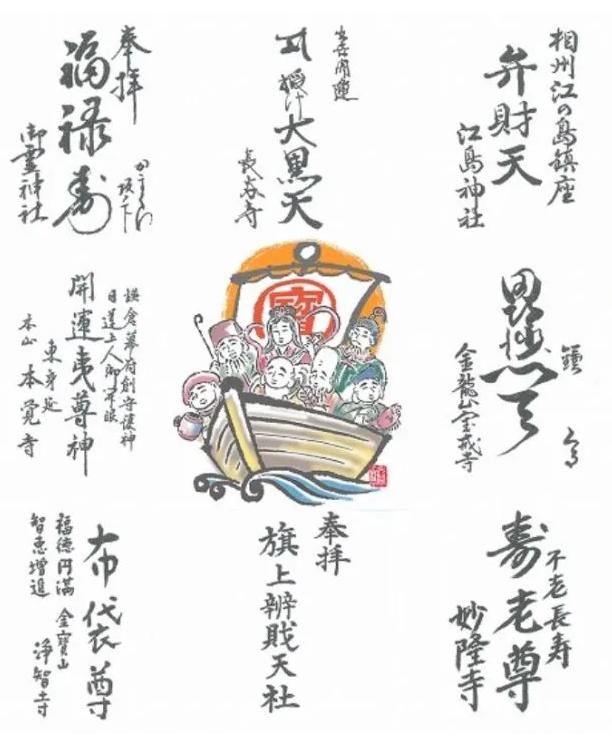 相州江の島鎮座
弁財天
江島神社
出世開運
授け大黒天
長谷寺
奉拝
福禄寿
坂ノ下
御霊神社
毘沙門天
金龍山宝戒寺
寳
鎌倉幕府創守護神
日蓮上人御帰依
開運夷尊神
東身延
本山 本覚寺
不老長寿
寿老尊
妙隆寺
奉拝
旗上辨財天社
布袋尊
金寶山
浄智寺
福徳円満
智恵増進